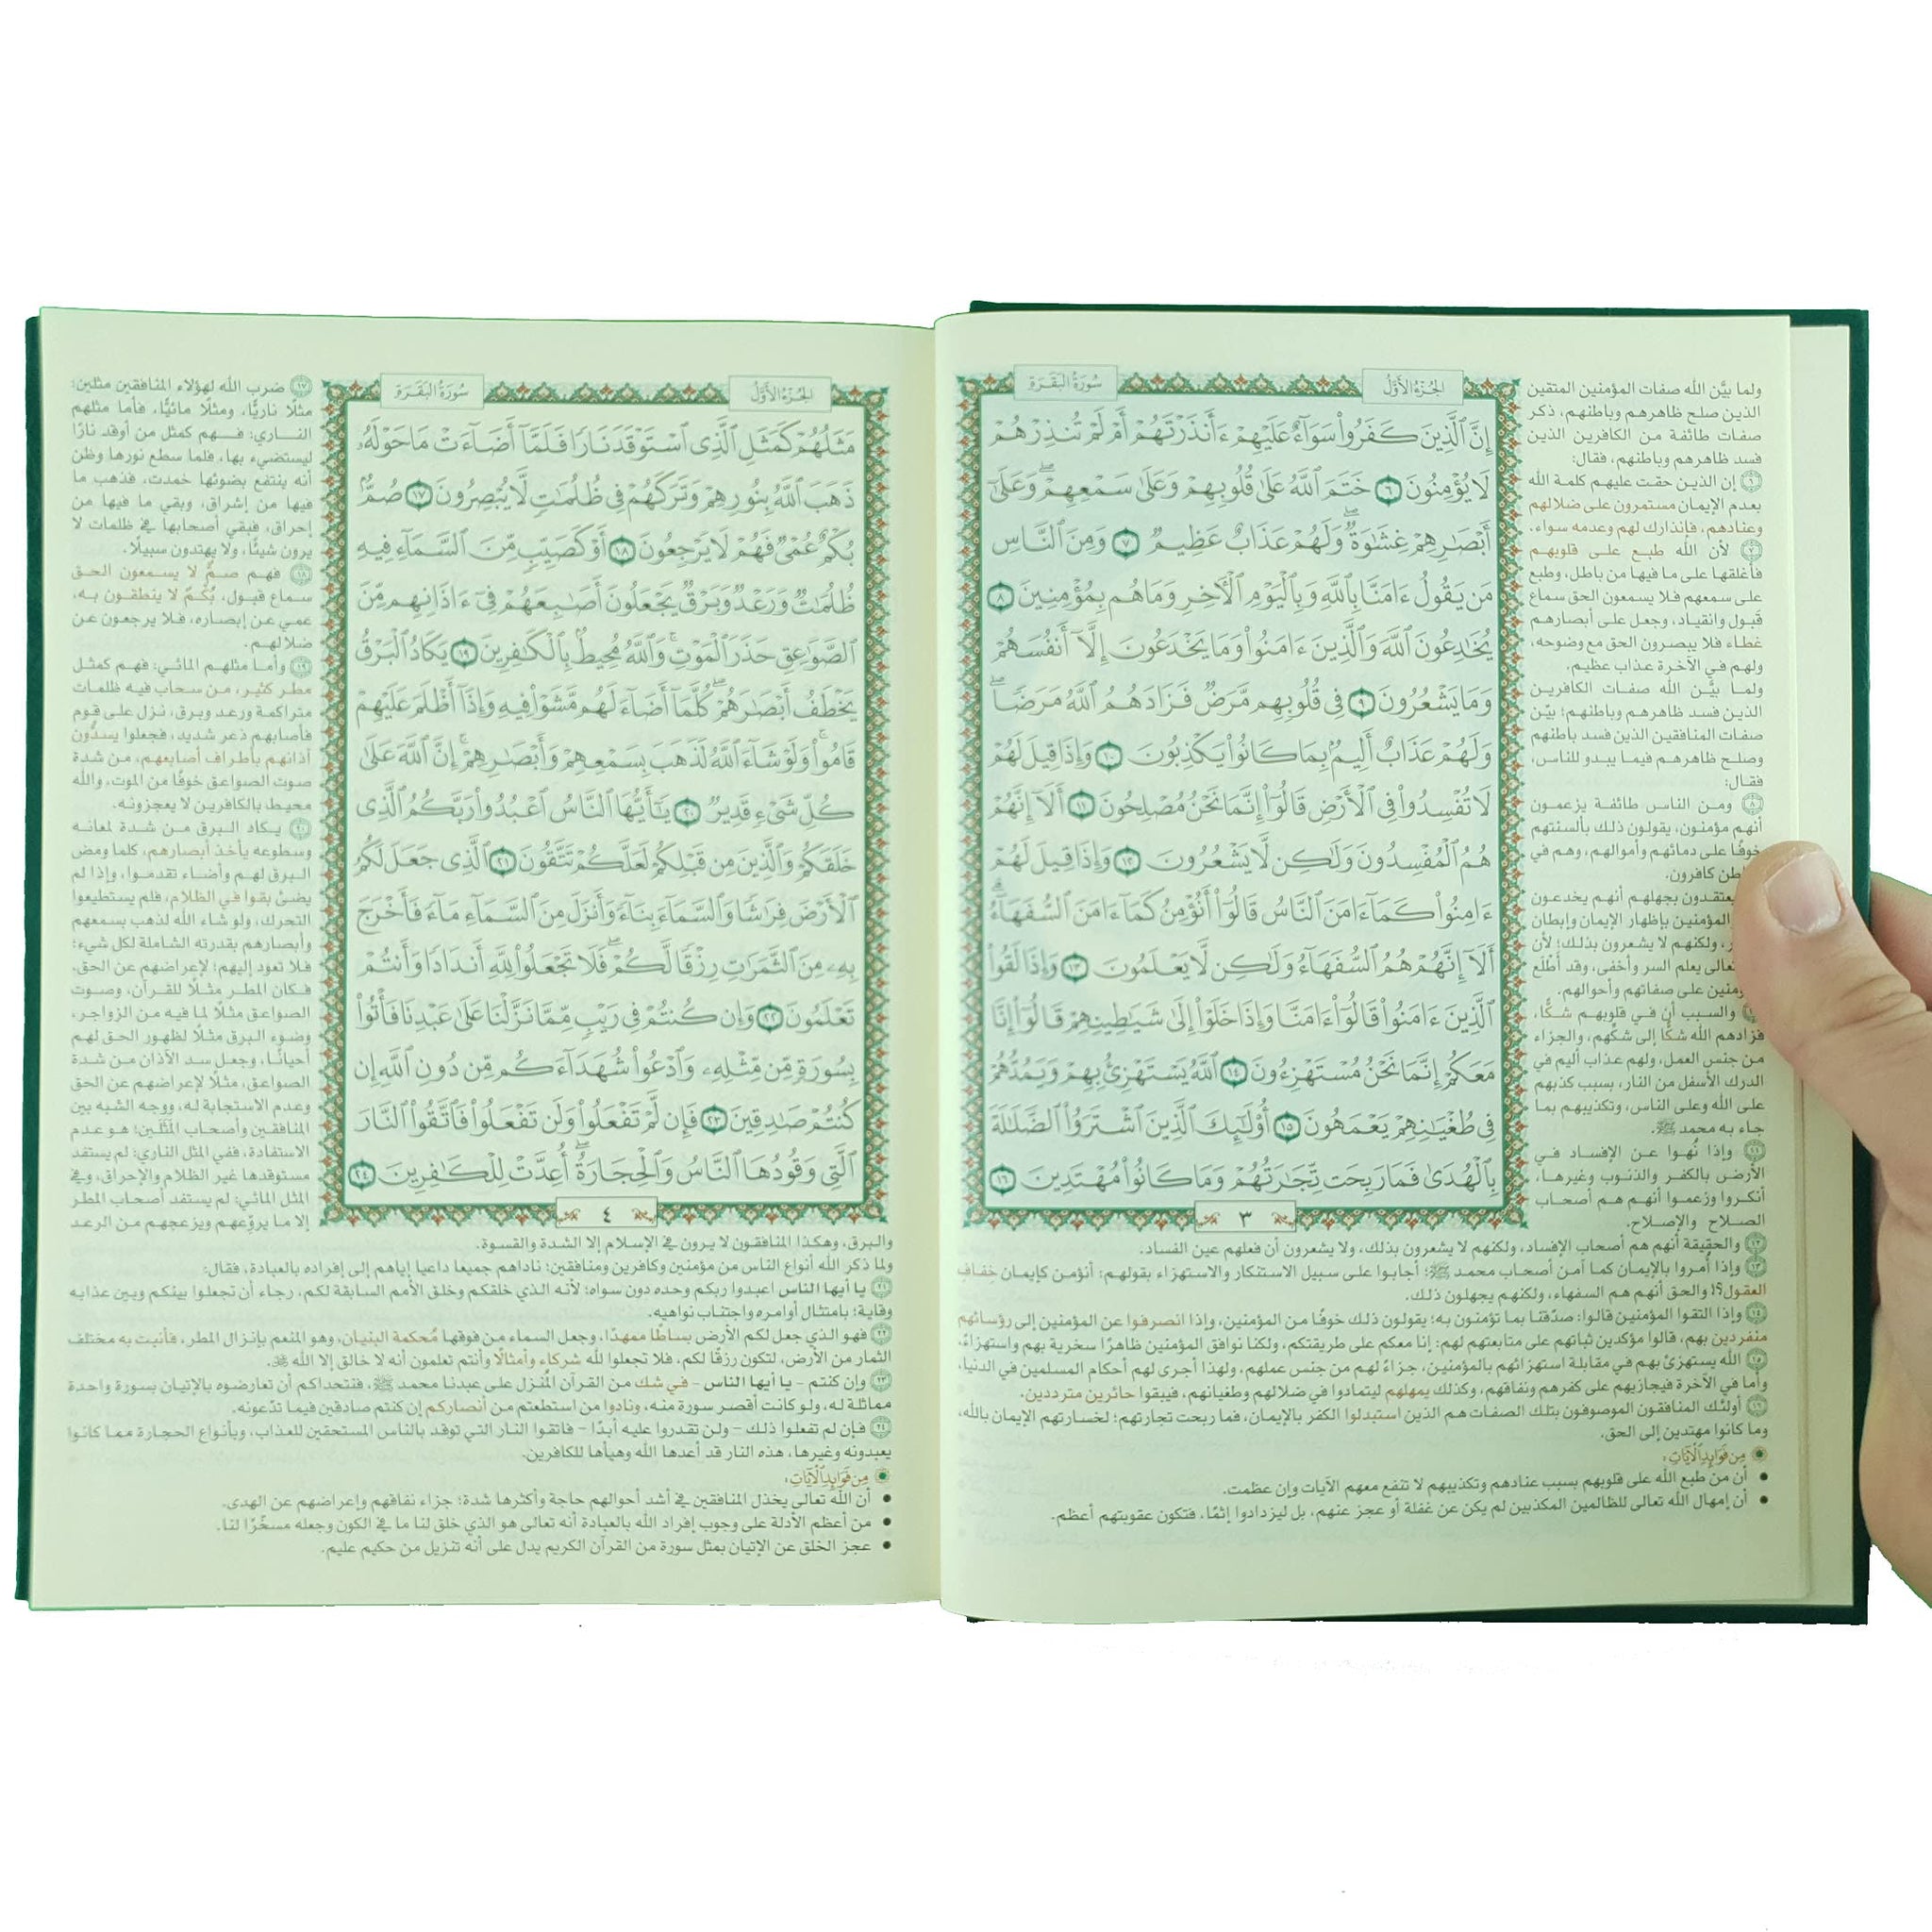 الجُزْءُ الأَوَّلُ
سُورَةُ البَقَرَةِ
إِنَّ ٱلَّذِينَ كَفَرُوا۟ سَوَآءٌ عَلَيْهِمْ ءَأَنذَرْتَهُمْ أَمْ لَمْ تُنذِرْهُمْ
لَا يُؤْمِنُونَ ٦ خَتَمَ ٱللَّهُ عَلَىٰ قُلُوبِهِمْ وَعَلَىٰ سَمْعِهِمْ ۖ وَعَلَىٰٓ
أَبْصَٰرِهِمْ غِشَٰوَةٌ ۖ وَلَهُمْ عَذَابٌ عَظِيمٌ ٧ وَمِنَ ٱلنَّاسِ
مَن يَقُولُ ءَامَنَّا بِٱللَّهِ وَبِٱلْيَوْمِ ٱلْءَاخِرِ وَمَا هُم بِمُؤْمِنِينَ ٨
يُخَٰدِعُونَ ٱللَّهَ وَٱلَّذِينَ ءَامَنُوا۟ وَمَا يَخْدَعُونَ إِلَّآ أَنفُسَهُمْ
وَمَا يَشْعُرُونَ ٩ فِى قُلُوبِهِم مَّرَضٌ فَزَادَهُمُ ٱللَّهُ مَرَضًا ۖ
وَلَهُمْ عَذَابٌ أَلِيمٌۢ بِمَا كَانُوا۟ يَكْذِبُونَ ١٠ وَإِذَا قِيلَ لَهُمْ
لَا تُفْسِدُوا۟ فِى ٱلْأَرْضِ قَالُوٓا۟ إِنَّمَا نَحْنُ مُصْلِحُونَ ١١ أَلَآ إِنَّهُمْ
هُمُ ٱلْمُفْسِدُونَ وَلَٰكِن لَّا يَشْعُرُونَ ١٢ وَإِذَا قِيلَ لَهُمْ
ءَامِنُوا۟ كَمَآ ءَامَنَ ٱلنَّاسُ قَالُوٓا۟ أَنُؤْمِنُ كَمَآ ءَامَنَ ٱلسُّفَهَآءُ ۗ
أَلَآ إِنَّهُمْ هُمُ ٱلسُّفَهَآءُ وَلَٰكِن لَّا يَعْلَمُونَ ١٣ وَإِذَا لَقُوا۟
ٱلَّذِينَ ءَامَنُوا۟ قَالُوٓا۟ ءَامَنَّا وَإِذَا خَلَوْا۟ إِلَىٰ شَيَٰطِينِهِمْ قَالُوٓا۟ إِنَّا
مَعَكُمْ إِنَّمَا نَحْنُ مُسْتَهْزِءُونَ ١٤ ٱللَّهُ يَسْتَهْزِئُ بِهِمْ وَيَمُدُّهُمْ
فِى طُغْيَٰنِهِمْ يَعْمَهُونَ ١٥ أُو۟لَٰٓئِكَ ٱلَّذِينَ ٱشْتَرَوُا۟ ٱلضَّلَٰلَةَ
بِٱلْهُدَىٰ فَمَا رَبِحَت تِّجَٰرَتُهُمْ وَمَا كَانُوا۟ مُهْتَدِينَ ١٦
٣
ولما بيَّن الله صفات المؤمنين المتقين
الذين صلح ظاهرهم وباطنهم، ذكر
صفات طائفة من الكافرين الذين
فسد ظاهرهم وباطنهم، فقال:
٦ إن الذين حقت عليهم كلمة الله
بعدم الإيمان مستمرون على ضلالهم
وعنادهم، فإنذارك لهم وعدمه سواء.
٧ لأن الله طبع على قلوبهم
فأغلقها على ما فيها من باطل، وطبع
على سمعهم فلا يسمعون الحق سماع
قبول وانقياد، وجعل على أبصارهم
غطاء فلا يبصرون الحق مع وضوحه،
ولهم في الآخرة عذاب عظيم.
ولما بيَّن الله صفات الكافرين
الذين فسد ظاهرهم وباطنهم؛ بيّن
صفات المنافقين الذين فسد باطنهم
وصلح ظاهرهم فيما يبدو للناس،
فقال:
٨ ومن الناس طائفة يزعمون
أنهم مؤمنون، يقولون ذلك بألسنتهم
خوفًا على دمائهم وأموالهم، وهم في
كافرون.
بجهلهم أنهم يخدعون
المؤمنين بإظهار الإيمان وإبطان
ولكنهم لا يشعرون بذلك؛ لأن
يعلم السر وأخفى، وقد أطْلع
على صفاتهم وأحوالهم.
والسبب أن في قلوبهم شكًّا،
فزادهم الله شكًّا إلى شكِّهم، والجزاء
من جنس العمل، ولهم عذاب أليم في
الدرك الأسفل من النار، بسبب كذبهم
على الله وعلى الناس، وتكذيبهم بما
جاء به محمد ﷺ.
١١ وإذا نُهوا عن الإفساد في
الأرض بالكفر والذنوب وغيرها،
أنكروا وزعموا أنهم هم أصحاب
الصلاح والإصلاح.
١٢ والحقيقة أنهم هم أصحاب الإفساد، ولكنهم لا يشعرون بذلك، ولا يشعرون أن فعلهم عين الفساد.
١٣ وإذا أُمروا بالإيمان كما آمن أصحاب محمد ﷺ؛ أجابوا على سبيل الاستنكار والاستهزاء بقولهم: أنؤمن كإيمان خفاف
العقول؟! والحق أنهم هم السفهاء، ولكنهم يجهلون ذلك.
١٤ وإذا التقوا المؤمنين قالوا: صدّقنا بما تؤمنون به؛ يقولون ذلك خوفًا من المؤمنين، وإذا انصرفوا عن المؤمنين إلى رؤسائهم
منفردين بهم، قالوا مؤكدين ثباتهم على متابعتهم لهم: إنا معكم على طريقتكم، ولكنا نوافق المؤمنين ظاهرًا سخرية بهم واستهزاءً.
١٥ الله يستهزئ بهم في مقابلة استهزائهم بالمؤمنين، جزاءً لهم من جنس عملهم، ولهذا أجرى لهم أحكام المسلمين في الدنيا،
وأما في الآخرة فيجازيهم على كفرهم ونفاقهم، وكذلك يمهلهم ليتمادوا في ضلالهم وطغيانهم، فيبقوا حائرين مترددين.
١٦ أولئك المنافقون الموصوفون بتلك الصفات هم الذين استبدلوا الكفر بالإيمان، فما ربحت تجارتهم؛ لخسارتهم الإيمان بالله،
وما كانوا مهتدين إلى الحق.
مِن فَوَائِدِ الآيَاتِ:
• أن من طبع الله على قلوبهم بسبب عنادهم وتكذيبهم لا تنفع معهم الآيات وإن عظمت.
• أن إمهال الله تعالى للظالمين المكذبين لم يكن عن غفلة أو عجز عنهم، بل ليزدادوا إثمًا، فتكون عقوبتهم أعظم.
الجُزْءُ الأَوَّلُ
سُورَةُ البَقَرَةِ
مَثَلُهُمْ كَمَثَلِ ٱلَّذِى ٱسْتَوْقَدَ نَارًا فَلَمَّآ أَضَآءَتْ مَا حَوْلَهُۥ
ذَهَبَ ٱللَّهُ بِنُورِهِمْ وَتَرَكَهُمْ فِى ظُلُمَٰتٍ لَّا يُبْصِرُونَ ١٧ صُمٌّۢ
بُكْمٌ عُمْىٌ فَهُمْ لَا يَرْجِعُونَ ١٨ أَوْ كَصَيِّبٍ مِّنَ ٱلسَّمَآءِ فِيهِ
ظُلُمَٰتٌ وَرَعْدٌ وَبَرْقٌ يَجْعَلُونَ أَصَٰبِعَهُمْ فِىٓ ءَاذَانِهِم مِّنَ
ٱلصَّوَٰعِقِ حَذَرَ ٱلْمَوْتِ ۚ وَٱللَّهُ مُحِيطٌۢ بِٱلْكَٰفِرِينَ ١٩ يَكَادُ ٱلْبَرْقُ
يَخْطَفُ أَبْصَٰرَهُمْ ۖ كُلَّمَآ أَضَآءَ لَهُم مَّشَوْا۟ فِيهِ وَإِذَآ أَظْلَمَ عَلَيْهِمْ
قَامُوا۟ ۚ وَلَوْ شَآءَ ٱللَّهُ لَذَهَبَ بِسَمْعِهِمْ وَأَبْصَٰرِهِمْ ۚ إِنَّ ٱللَّهَ عَلَىٰ
كُلِّ شَىْءٍ قَدِيرٌ ٢٠ يَٰٓأَيُّهَا ٱلنَّاسُ ٱعْبُدُوا۟ رَبَّكُمُ ٱلَّذِى
خَلَقَكُمْ وَٱلَّذِينَ مِن قَبْلِكُمْ لَعَلَّكُمْ تَتَّقُونَ ٢١ ٱلَّذِى جَعَلَ لَكُمُ
ٱلْأَرْضَ فِرَٰشًا وَٱلسَّمَآءَ بِنَآءً وَأَنزَلَ مِنَ ٱلسَّمَآءِ مَآءً فَأَخْرَجَ
بِهِۦ مِنَ ٱلثَّمَرَٰتِ رِزْقًا لَّكُمْ ۖ فَلَا تَجْعَلُوا۟ لِلَّهِ أَندَادًا وَأَنتُمْ
تَعْلَمُونَ ٢٢ وَإِن كُنتُمْ فِى رَيْبٍ مِّمَّا نَزَّلْنَا عَلَىٰ عَبْدِنَا فَأْتُوا۟
بِسُورَةٍ مِّن مِّثْلِهِۦ وَٱدْعُوا۟ شُهَدَآءَكُم مِّن دُونِ ٱللَّهِ إِن
كُنتُمْ صَٰدِقِينَ ٢٣ فَإِن لَّمْ تَفْعَلُوا۟ وَلَن تَفْعَلُوا۟ فَٱتَّقُوا۟ ٱلنَّارَ
ٱلَّتِى وَقُودُهَا ٱلنَّاسُ وَٱلْحِجَارَةُ ۖ أُعِدَّتْ لِلْكَٰفِرِينَ ٢٤
٤
١٧ ضرب الله لهؤلاء المنافقين مثلين:
مثلًا ناريًّا، ومثلًا مائيًّا، فأما مثلهم
الناري: فهم كمثل من أوقد نارًا
ليستضيء بها، فلما سطع نورها وظن
أنه ينتفع بضوئها خمدت، فذهب ما
فيها من إشراق، وبقي ما فيها من
إحراق، فبقي أصحابها في ظلمات لا
يرون شيئًا، ولا يهتدون سبيلًا.
١٨ فهم صمٌّ لا يسمعون الحق
سماع قبول، بُكْمٌ لا ينطقون به،
عمي عن إبصاره، فلا يرجعون عن
ضلالهم.
١٩ وأما مثلهم المائي: فهم كمثل
مطر كثير، من سحاب فيه ظلمات
متراكمة ورعد وبرق، نزل على قوم
فأصابهم ذعر شديد، فجعلوا يسدُّون
آذانهم بأطراف أصابعهم، من شدة
صوت الصواعق خوفًا من الموت، والله
محيط بالكافرين لا يعجزونه.
٢٠ يكاد البرق من شدة لمعانه
وسطوعه يأخذ أبصارهم، كلما ومض
البرق لهم وأضاء تقدموا، وإذا لم
يضئ بقوا في الظلام، فلم يستطيعوا
التحرك، ولو شاء الله لذهب بسمعهم
وأبصارهم بقدرته الشاملة لكل شيء؛
فلا تعود إليهم؛ لإعراضهم عن الحق.
فكان المطر مثلًا للقرآن، وصوت
الصواعق مثلًا لما فيه من الزواجر،
وضوء البرق مثلًا لظهور الحق لهم
أحيانًا، وجعل سد الآذان من شدة
الصواعق، مثلًا لإعراضهم عن الحق
وعدم الاستجابة له، ووجه الشبه بين
المنافقين وأصحاب المَثَلَين؛ هو عدم
الاستفادة، ففي المثل الناري: لم يستفد
مستوقدها غير الظلام والإحراق، وفي
المثل المائي: لم يستفد أصحاب المطر
إلا ما يروِّعهم ويزعجهم من الرعد
والبرق، وهكذا المنافقون لا يرون في الإسلام إلا الشدة والقسوة.
ولما ذكر الله أنواع الناس من مؤمنين وكافرين ومنافقين؛ ناداهم جميعا داعيا إياهم إلى إفراده بالعبادة، فقال:
٢١ يا أيها الناس اعبدوا ربكم وحده دون سواه؛ لأنه الذي خلقكم وخلق الأمم السابقة لكم، رجاء أن تجعلوا بينكم وبين عذابه
وقاية؛ بامتثال أوامره واجتناب نواهيه.
٢٢ فهو الذي جعل لكم الأرض بساطًا ممهدًا، وجعل السماء من فوقها مُحكمة البنيان، وهو المنعم بإنزال المطر، فأنبت به مختلف
الثمار من الأرض، لتكون رزقًا لكم، فلا تجعلوا لله شركاء وأمثالًا وأنتم تعلمون أنه لا خالق إلا الله
٢٣ وإن كنتم - يا أيها الناس - في شك من القرآن المُنزل على عبدنا محمد ﷺ، فنتحداكم أن تعارضوه بالإتيان بسورة واحدة
مماثلة له، ولو كانت أقصر سورة منه، ونادوا من استطعتم من أنصاركم إن كنتم صادقين فيما تدّعونه.
٢٤ فإن لم تفعلوا ذلك - ولن تقدروا عليه أبدًا - فاتقوا النار التي توقد بالناس المستحقين للعذاب، وبأنواع الحجارة مما كانوا
يعبدونه وغيرها، هذه النار قد أعدها الله وهيأها للكافرين.
مِن فَوَائِدِ الآيَاتِ:
• أن الله تعالى يخذل المنافقين في أشد أحوالهم حاجة وأكثرها شدة؛ جزاء نفاقهم وإعراضهم عن الهدى.
• من أعظم الأدلة على وجوب إفراد الله بالعبادة أنه تعالى هو الذي خلق لنا ما في الكون وجعله مسخَّرًا لنا.
• عجز الخلق عن الإتيان بمثل سورة من القرآن الكريم يدل على أنه تنزيل من حكيم عليم.